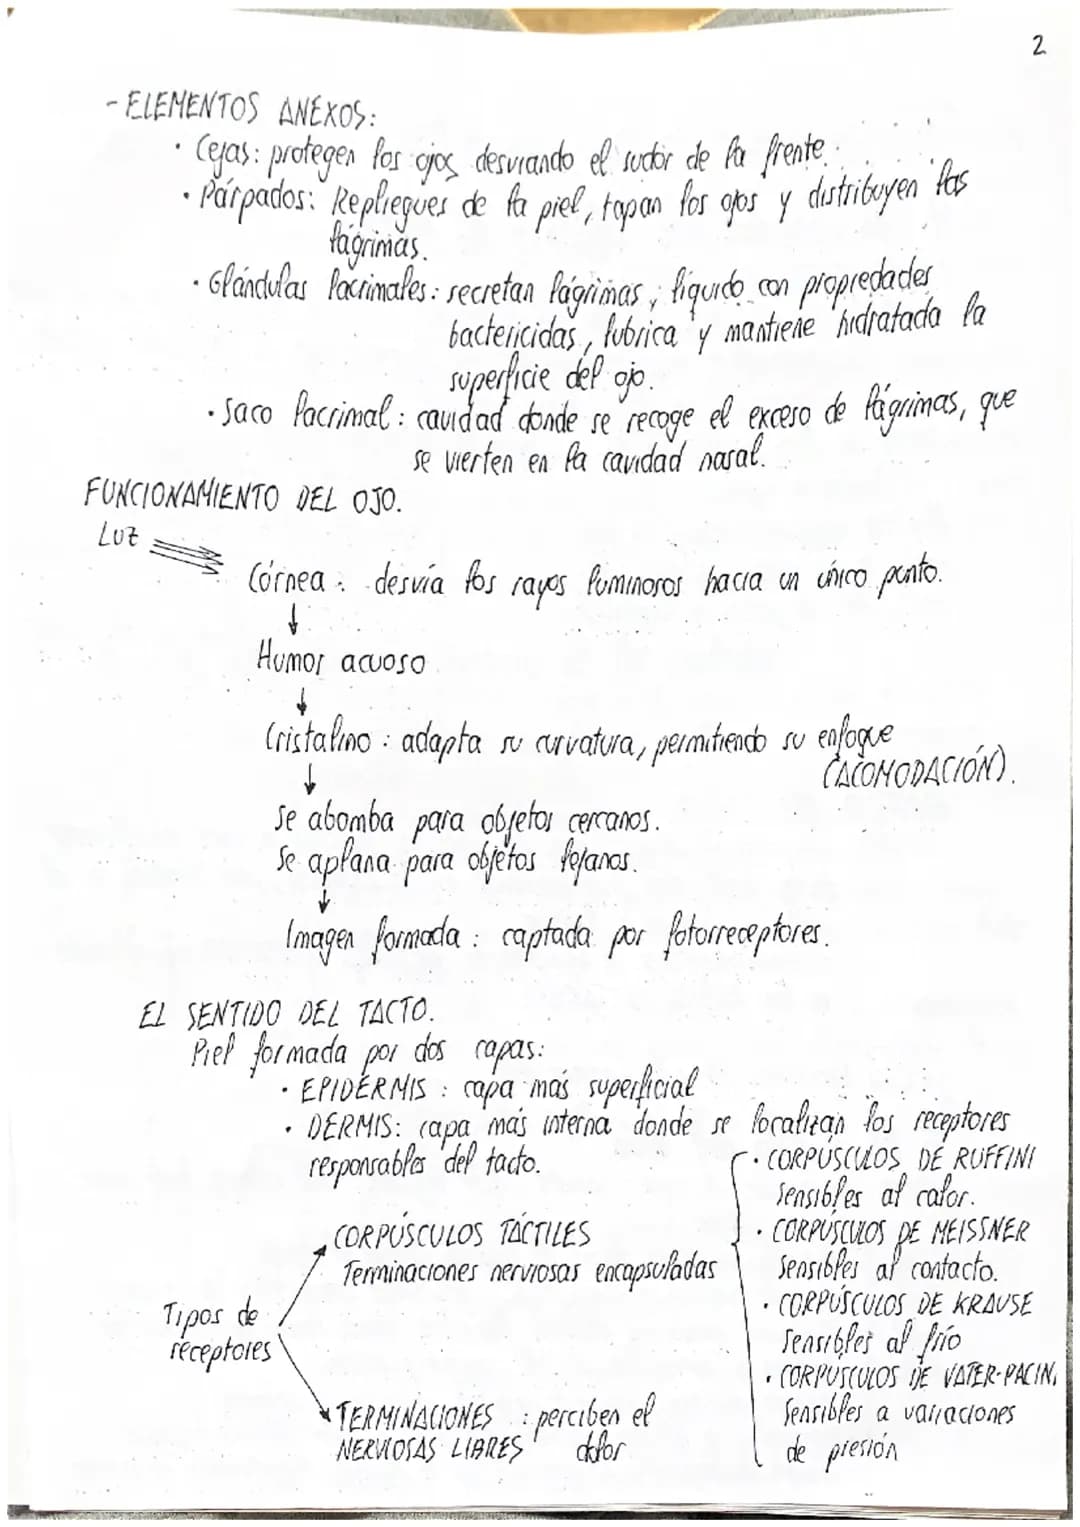 2
- ELEMENTOS ANEXOS:
· Cejas: protegen los ojos desviando el sudor de la frente.
· Párpados: Repliegues de la piel, tapan los ojos y distribuyen las
lágrimas.
· Glándulas lacrimales: secretan lágrimas, líquido con propiedades
bactericidas, lubrica y mantiene hidratada la
superficie del ojo.
· Saco lacrimal: cavidad donde se recoge el exceso de lágrimas, que
se vierten en la cavidad nasal.
FUNCIONAMIENTO DEL OJO.
Luz
Córnea: desvía los rayos luminosos hacia un único punto.
↓
Humor acuoso
↓
Cristalino: adapta su curvatura, permitiendo su enfoque
(ACOMODACIÓN).
↓
Se abomba para objetos cercanos.
Se aplana para objetos lejanos.
↓
Imagen formada: captada por fotorreceptores.
EL SENTIDO DEL TACTO.
Piel formada por dos capas:
· EPIDÉRMIS: capa más superficial
· DERMIS: capa más interna donde se localizan los receptores
responsables del tacto.
Tipos de
receptores
CORPÚSCULOS TÁCTILES
Terminaciones nerviosas encapsuladas
· CORPÚSCULOS DE RUFFINI
Sensibles al calor.
· CORPÚSCULOS DE MEISSNER
Sensibles al contacto.
· CORPÚSCULOS DE KRAUSE
Sensibles al frío
· CORPÚSCULOS DE VATER-PACINI
Sensibles a variaciones
de presión
TERMINACIONES : perciben el
NERVIOSAS LIBRES dolor